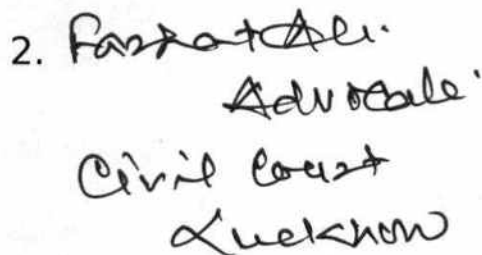 2. Farhat Ali
Advocate
Civil Court
Lucknow